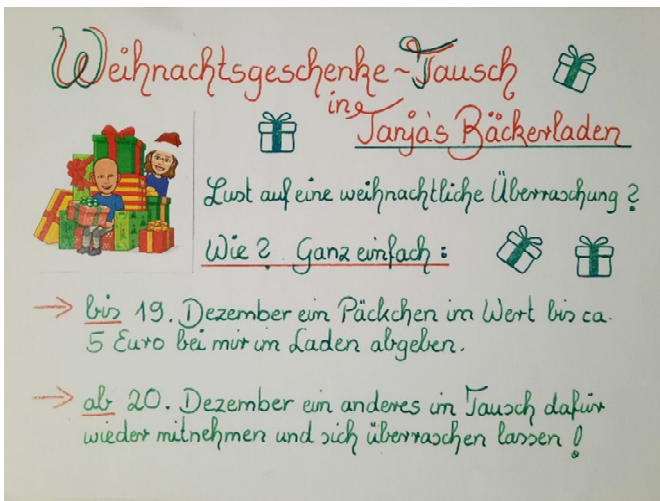 Weihnachtsgeschenke-Tausch
in
Tanja's Bäckerladen
Lust auf eine weihnachtliche Überraschung?
Wie? Ganz einfach:
→ bis 19. Dezember ein Päckchen im Wert bis ca.
5 Euro bei mir im Laden abgeben.
→ ab 20. Dezember ein anderes im Tausch dafür
wieder mitnehmen und sich überraschen lassen!